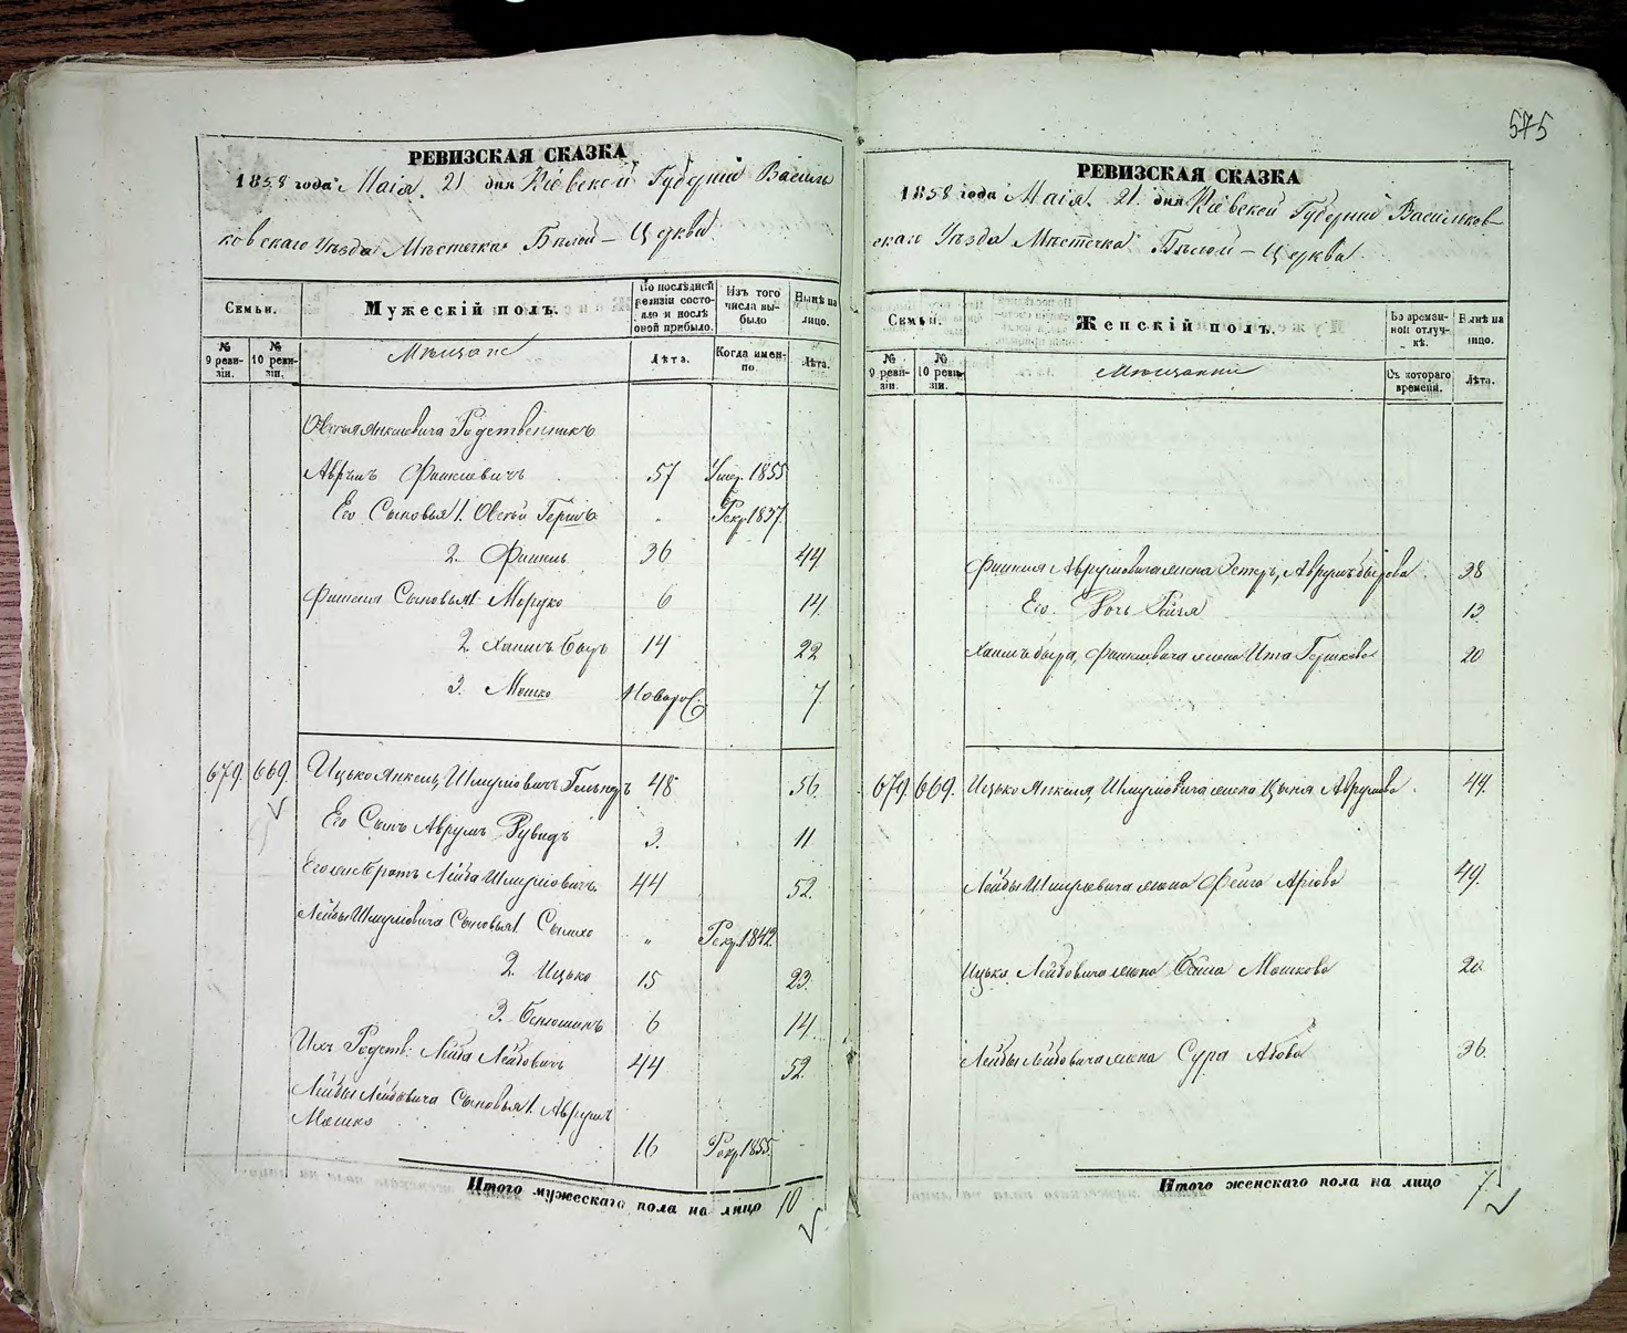 575
РЕВИЗСКАЯ СКАЗКА
1858 года Маія 21 дня Кіевской Губерніи Василь
ковскаго Уѣзда Мѣстечка Бѣлой – Церкви
Семьи.
Мужескій полъ.
По послѣдней ревизіи состояло и послѣ оной прибыло.
Изъ того числа выбыло
Нынѣ на лицо.
№ 9 ревизіи.
№ 10 ревизіи.
Мѣщане
Лѣта.
Когда именно.
Лѣта.
Овсѣя Янкелевича Родственникъ
Аврумъ Фишелевичъ 57 Умер. 1855
Его Сыновья 1. Овсѣй Гершъ " Рекр. 1837
2. Фишель 36 44
Фишеля Сыновья 1. Мордко 6 14
2. Хаимъ Беръ 14 22
3. Мошко Новорож. 7
679. 669. Ицько Янкель Шмулiовичъ 48 56.
Его Сынъ Аврумъ Рувидъ 3. 11
Его же братъ Лейба Шмулiовичъ 44 52.
Лейбы Шмулiовича Сыновья 1. Сымхо " Рекр. 1842.
2. Ицько 15 23.
3. Бенюминъ 6 14.
Ихъ Родств: Лейба Лейбовичъ 44 52.
Лейбы Лейбовича Сыновья 1. Аврумъ
Мошко 16 Рекр. 1855. -
Итого мужескаго пола на лицо 10
РЕВИЗСКАЯ СКАЗКА
1858 года Маія 21 дня Кіевской Губерніи Васильков-
скаго Уѣзда Мѣстечка Бѣлой – Церкви
Семьи.
Женскій полъ.
Во временной отлучкѣ.
Нынѣ на лицо.
№ 9 ревизіи.
№ 10 ревизіи.
Мѣщанки
Съ котораго времени.
Лѣта.
Фишеля Аврумовича жена Эстеръ, Аврумъ 38
Его Дочь Рейзя 13
Хаимъ Бера, Фишелевича жена Ита Гершкова 20
679. 669. Ицько Янкеля, Шмулiовича жена Цыпя Аврумова 44.
Лейбы Шмулiовича жена Фейга Аріова 49.
Ицька Лейбовича жена Бейла Мошкова 20
Лейбы Лейбовича жена Сура Абова 36.
Итого женскаго пола на лицо 7